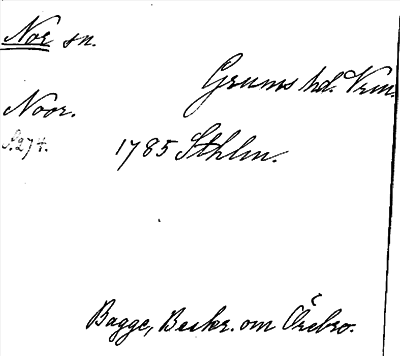 Nor sn.
Grums hd. Vrm.
Noor.
S. 274. 1785 Sthlm.
Bagge, Beskr. om Örebro.